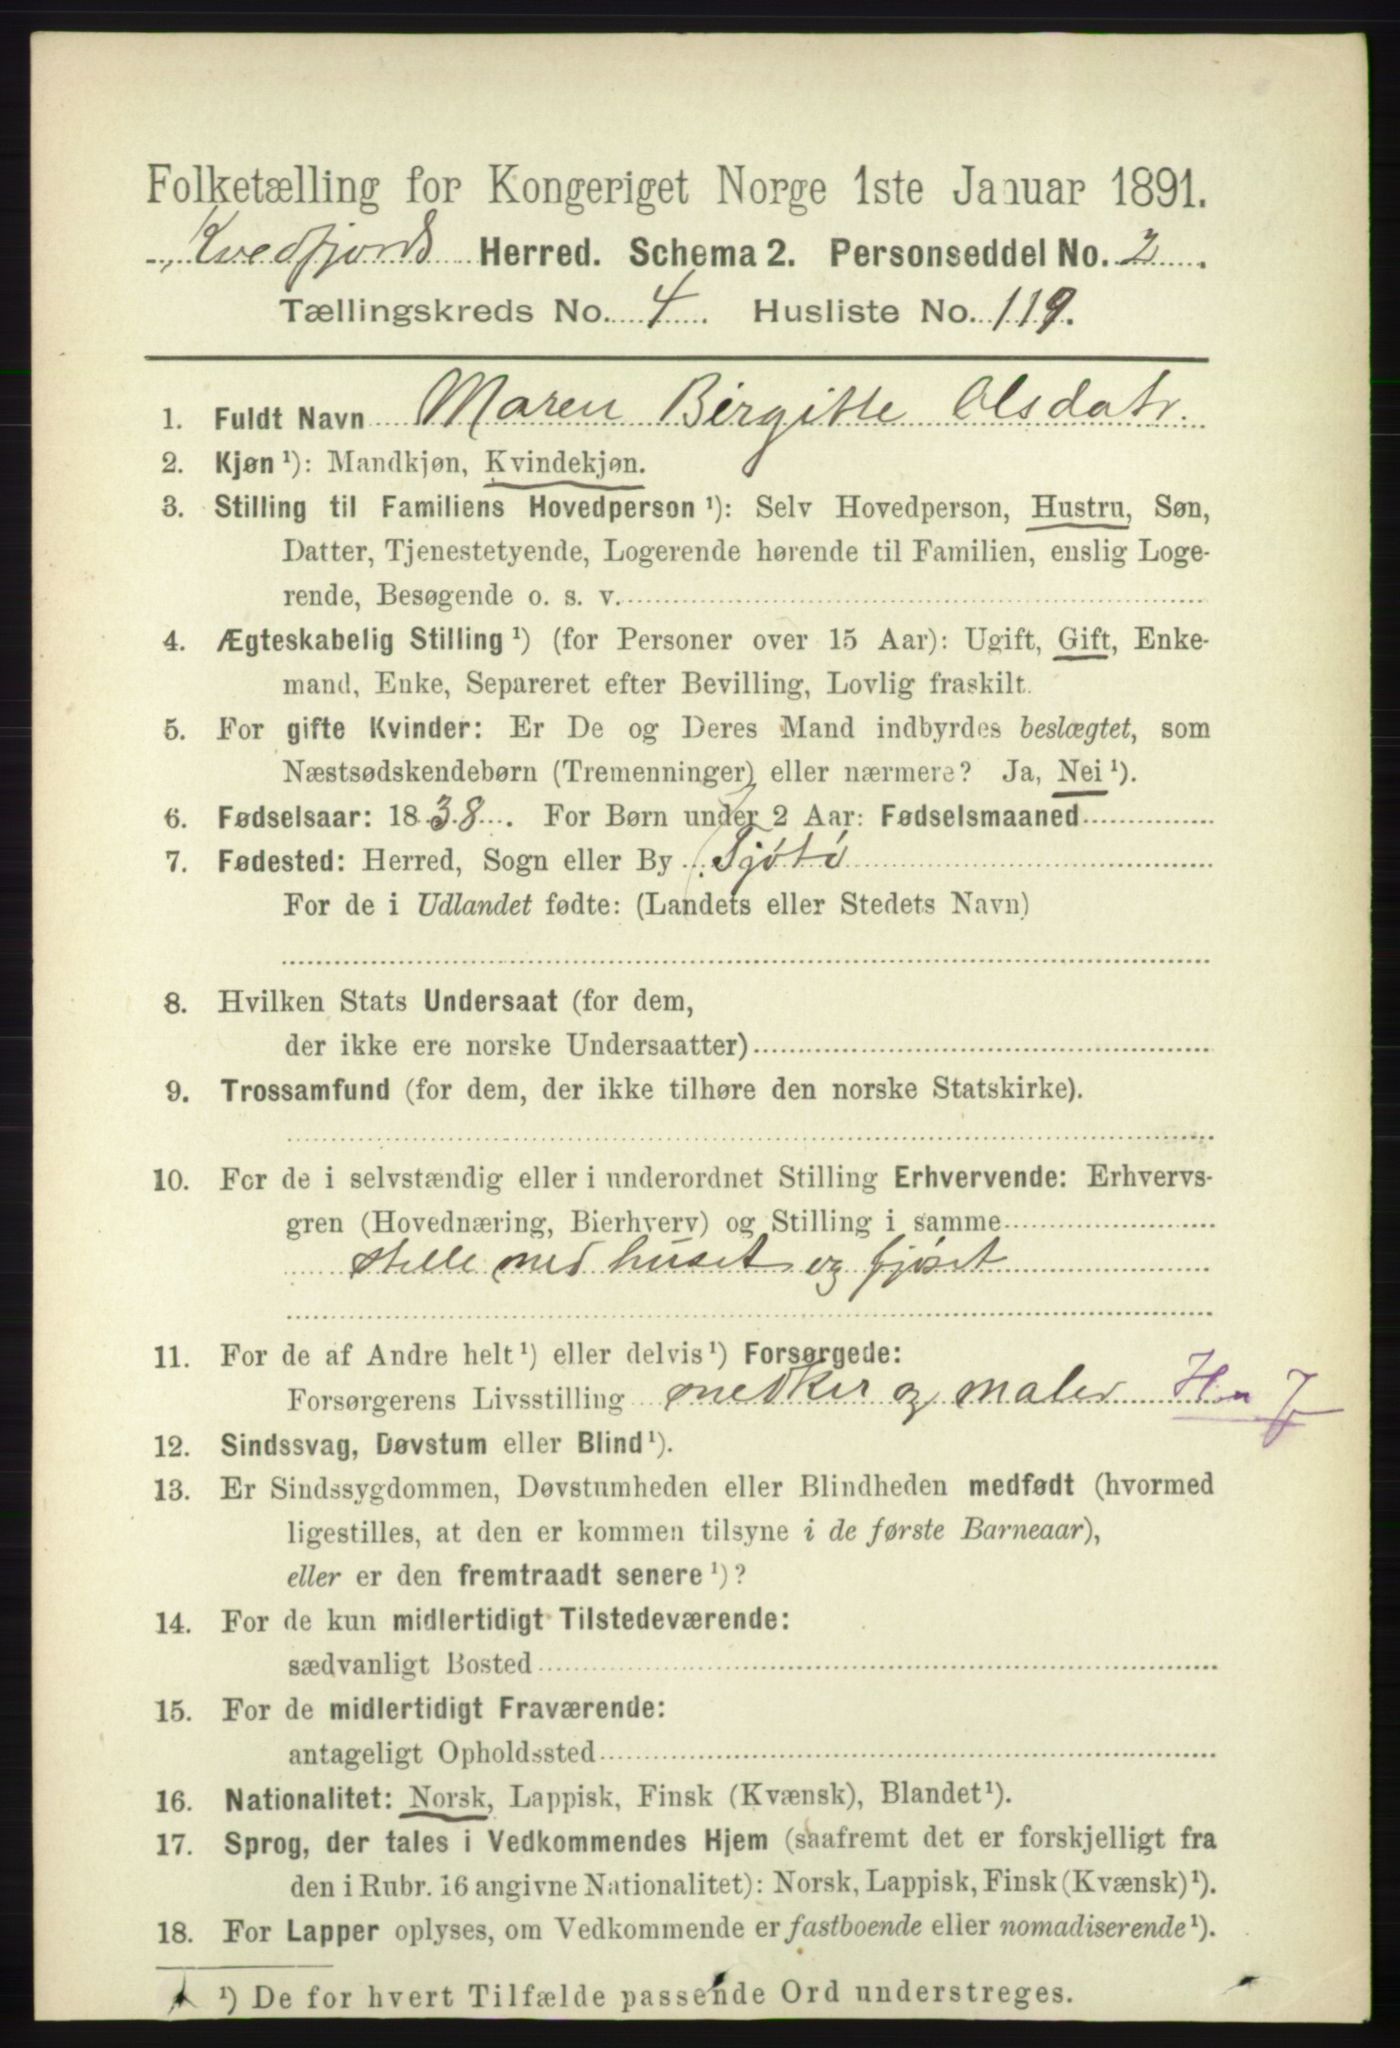 Folketælling for Kongeriget Norge 1ste Januar 1891.
Kvedfjords Herred. Schema 2. Personseddel No. 2
Tællingskreds No. 4 Husliste No. 119.
1. Fuldt Navn Maren Birgitte Olsdatr.
2. Kjøn ¹): Mandkjøn, Kvindekjøn.
3. Stilling til Familiens Hovedperson ¹): Selv Hovedperson, Hustru, Søn,
Datter, Tjenestetyende, Logerende hørende til Familien, enslig Loge-
rende, Besøgende o. s. v.
4. Ægteskabelig Stilling ¹) (for Personer over 15 Aar): Ugift, Gift, Enke-
mand, Enke, Separeret efter Bevilling, Lovlig fraskilt.
5. For gifte Kvinder: Er De og Deres Mand indbyrdes beslægtet, som
Næstsødskendebørn (Tremenninger) eller nærmere? Ja, Nei ¹).
6. Fødselsaar: 1838. For Børn under 2 Aar: Fødselsmaaned
7. Fødested: Herred, Sogn eller By Tjøtø
For de i Udlandet fødte: (Landets eller Stedets Navn)
8. Hvilken Stats Undersaat (for dem,
der ikke ere norske Undersaatter)
9. Trossamfund (for dem, der ikke tilhøre den norske Statskirke).
10. For de i selvstændig eller i underordnet Stilling Erhvervende: Erhvervs-
gren (Hovednæring, Bierhverv) og Stilling i samme
stelle med huset og fjøset
11. For de af Andre helt ¹) eller delvis ¹) Forsørgede:
Forsørgerens Livsstilling og maler
12. Sindssvag, Døvstum eller Blind ¹).
13. Er Sindssygdommen, Døvstumheden eller Blindheden medfødt (hvormed
ligestilles, at den er kommen tilsyne i de første Barneaar),
eller er den fremtraadt senere ¹)?
14. For de kun midlertidigt Tilstedeværende:
sædvanligt Bosted
15. For de midlertidigt Fraværende:
antageligt Opholdssted
16. Nationalitet: Norsk, Lappisk, Finsk (Kvænsk), Blandet ¹).
17. Sprog, der tales i Vedkommendes Hjem (saafremt det er forskjelligt fra
den i Rubr. 16 angivne Nationalitet): Norsk, Lappisk, Finsk (Kvænsk) ¹).
18. For Lapper oplyses, om Vedkommende er fastboende eller nomadiserende ¹).
¹) De for hvert Tilfælde passende Ord understreges.